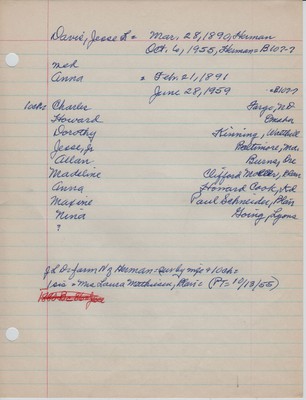 Davis, Jesse L = Mar. 28, 1890, Herman
Oct. 6, 1955, Herman = B107-7
mch
Anna = Feb 21, 1891
June 28, 1959 = B107-7
10chs Charles Fargo, N.D.
Howard Omaha
Dorothy Kinning,
Jesse, Jr Baltimore, Md.
Allan Burns, Ore
Madeline Clifford Moeller, Blair
Anna Howard Cook, K.C.
Maxine Paul Schneider, Blair
Nina Going, Lyons
?
J L D = farm N of Herman = sur by m & 10ch =
1 sis = Mrs Laura Mathiesen, Blair = (PT = 10/13/55)